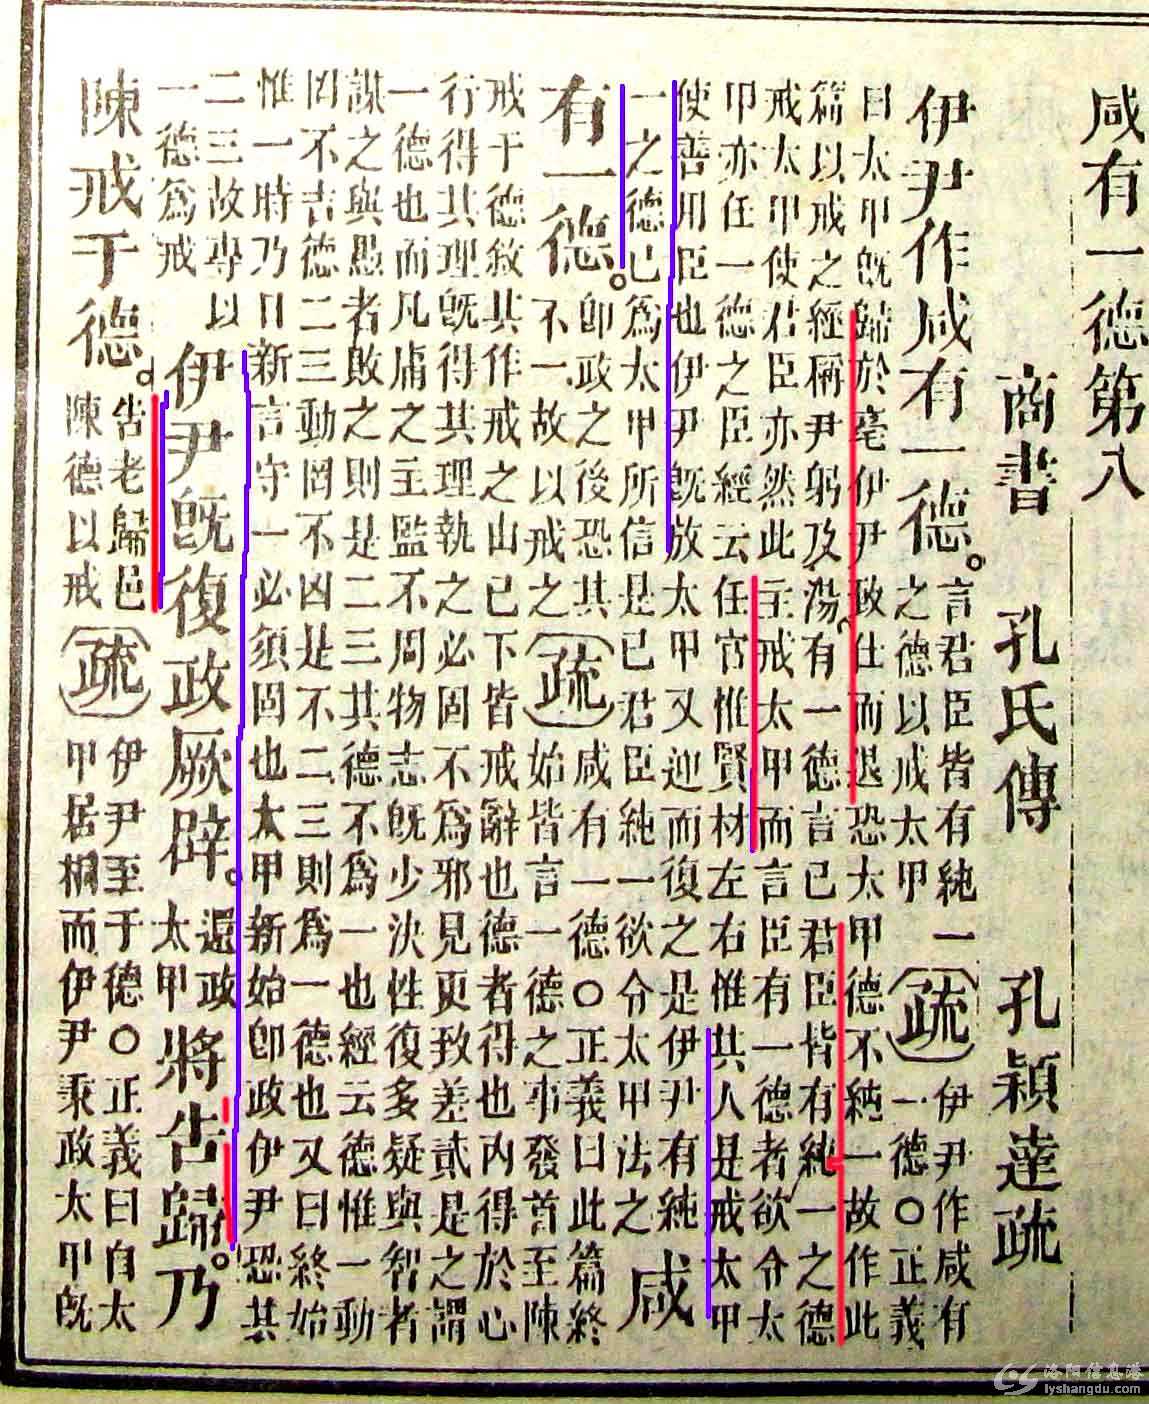 咸有一德第八
商書 孔氏傳 孔穎達疏
伊尹作咸有一德。言君臣皆有純一之德以戒太甲 疏 伊尹作咸有一德○正義
曰太甲既歸於亳伊尹致仕而退恐太甲德不純一故作此
篇以戒之經稱尹躬及湯有一德言已君臣皆有純一之德
戒太甲使君臣亦然此主戒太甲而言臣有一德者欲令太
甲亦任一德之臣經云任官惟賢材左右惟其人是戒太甲
使善用臣也伊尹既放太甲又迎而復之是伊尹有純
一之德已為太甲所信是已君臣純一欲令太甲法之 咸
有一德。即政之後恐其不一故以戒之 疏 咸有一德○正義曰此篇終始皆言一德之事發首至陳
戒于德敘其作戒之由已下皆戒辭也德者得也內得於心
行得其理既得其理執之必固不為邪見更致差貳是之謂
一德也而凡庸之主監不周物志既少決性復多疑與智者
謀之與愚者敗之則是二三其德不為一也經云德惟一動
罔不吉德二三動罔不凶是不二三則為一德也又曰終始
惟一時乃日新言守一必須固也太甲新始即政伊尹恐其
二三故專以一德為戒 伊尹既復政厥辟。還政太甲 將告歸。乃
陳戒于德。告老歸邑陳德以戒 疏 伊尹至于德○正義曰自太甲居桐而伊尹秉政太甲既
洛阳信息港
lyshangdu.com